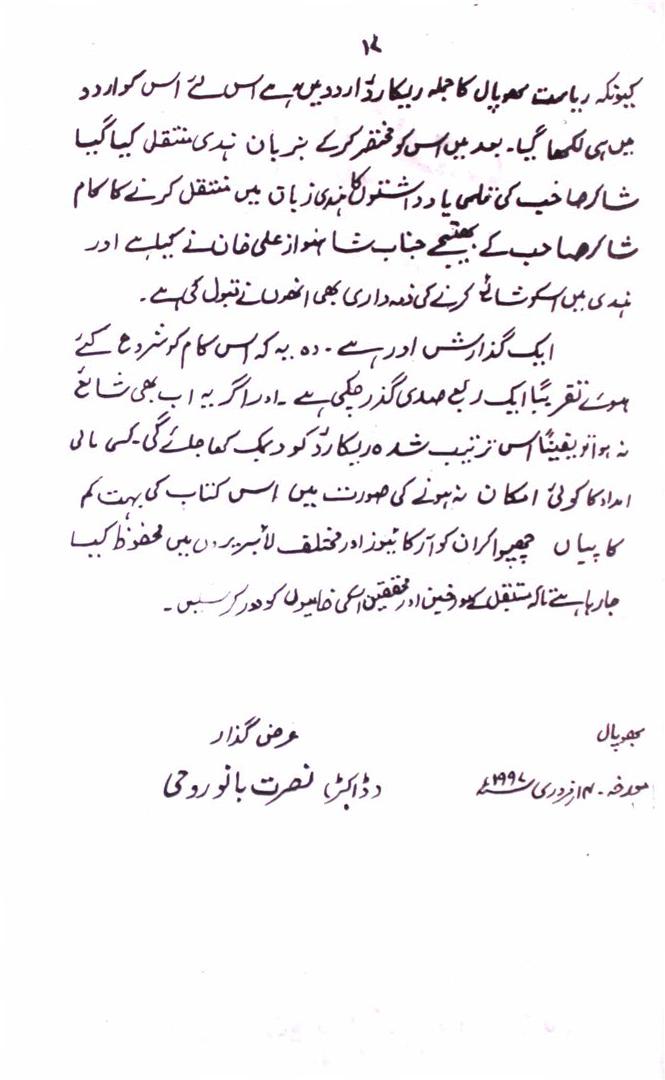 ۱۲
کیونکہ ریاست بھوپال کا جملہ ریکارڈ اردو میں ہے اس لئے اس کو اردو
میں ہی لکھا گیا۔ بعد میں اس کو مختصر کر کے بزبان ہندی منتقل کیا گیا
شاکر صاحب کی قلمی یادداشتوں کا ہندی زبان میں منتقل کرنے کا کام
شاکر صاحب کے بھتیجے جناب شاہنواز علی خان نے کیا ہے اور
ہندی میں اسکو شائع کرنے کی ذمہ داری بھی انھوں نے قبول کی ہے۔
ایک گذارش اور ہے۔ وہ یہ کہ اس کام کو شروع کئے
ہوئے تقریباً ایک ربع صدی گذر چکی ہے۔ اور اگر یہ اب بھی شائع
نہ ہوا تو یقیناً اس ترتیب شدہ ریکارڈ کو دیمک کھا جائے گی۔ کسی مالی
امداد کا کوئی امکان نہ ہونے کی صورت میں اس کتاب کی بہت کم
کاپیاں چھپوا کر ان کو آرکائیوز اور مختلف لائبریریوں میں محفوظ کیا
جا رہا ہے تاکہ مستقبل کے مورخین اور محققین اسکی خامیوں کو دور کر سکیں۔
بھوپال عرض گذار
مورخہ۔ ۱۴ فروری ۱۹۹۷ء ڈاکٹر نصرت بانو روحی